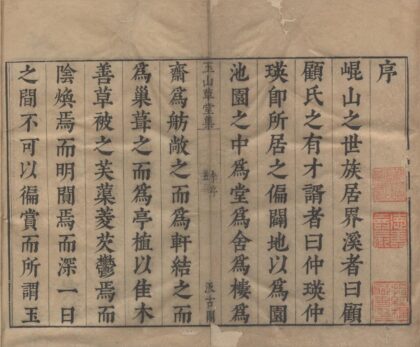 序
崐山之世族居界溪者曰顧
顧氏之有才諝者曰仲瑛仲
瑛即所居之偏闢地以爲園
池園之中爲堂爲舍爲樓爲
玉山草堂集
汲古閣
齋爲舫敞之而爲軒結之而
爲巢葺之而爲亭植以佳木
善草被之芙蕖菱芡鬱焉而
陰煥焉而明閴焉而深一日
之間不可以徧賞而所謂玉